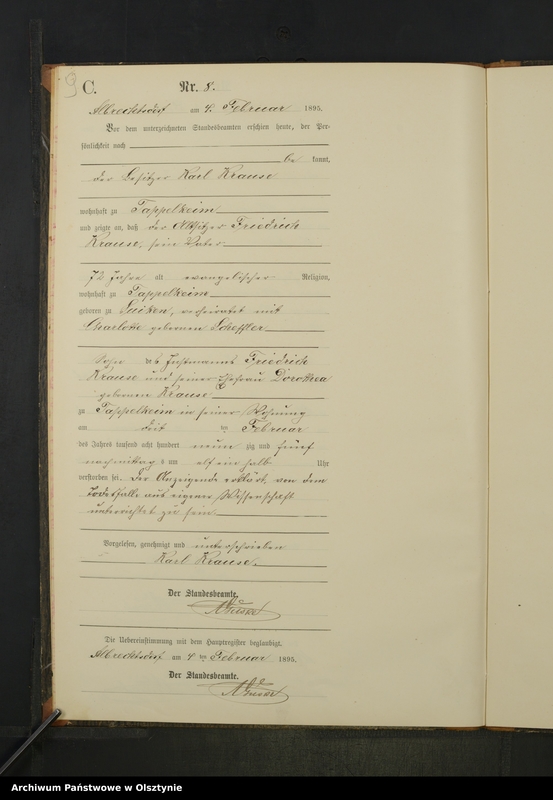 C.
Nr. 8.
Albrechtsdorf am 4. Februar 1895.
Vor dem unterzeichneten Standesbeamten erschien heute, der Per-
sönlichkeit nach
be kannt,
der Besitzer Karl Krause
wohnhaft zu Tappelkeim
und zeigte an, daß der Altsitzer Friedrich
Krause, sein Vater
72 Jahre alt evangelischer Religion,
wohnhaft zu Tappelkeim
geboren zu verheiratet mit
Charlotte geborenen Scheffler
Sohn des Instmanns Friedrich
Krause und seiner Ehefrau Dorothea
geborenen Krause
zu Tappelkeim in seiner Wohnung
am ten Februar
des Jahres tausend acht hundert neun zig und fünf
nachmittags um elf ein halb Uhr
verstorben sei. Der Anzeigende erklärt, von dem
Todesfalle aus eigener Wissenschaft
unterrichtet zu sein.
Vorgelesen, genehmigt und unterschrieben
Karl Krause.
Der Standesbeamte.
Die Uebereinstimmung mit dem Hauptregister beglaubigt.
Albrechtsdorf am 4 ten Februar 1895.
Der Standesbeamte.
Archiwum Państwowe w Olsztynie